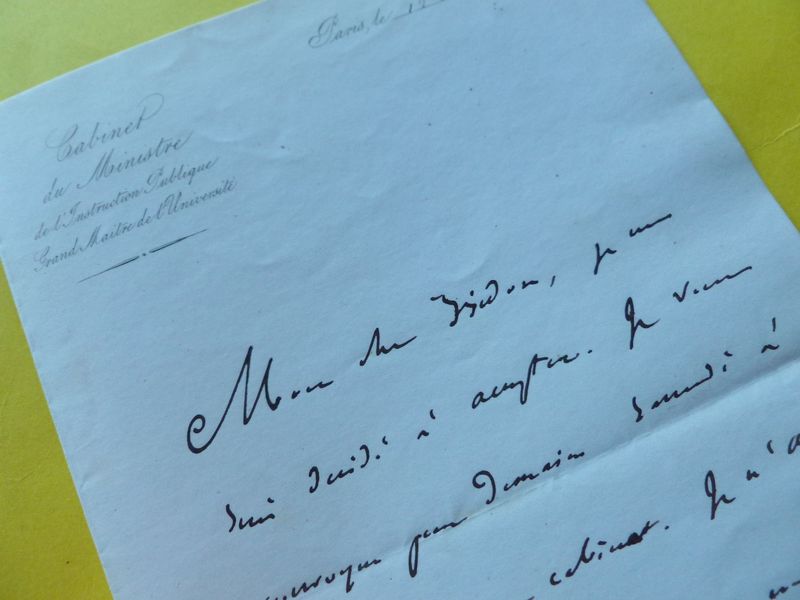 Paris, le
Cabinet
du Ministre
de l'Instruction Publique
Grand Maître de l'Université
Mon cher Isidore, je me
suis décidé à accepter. Je vous
pour demain samedi à
cabinet. Je n'a